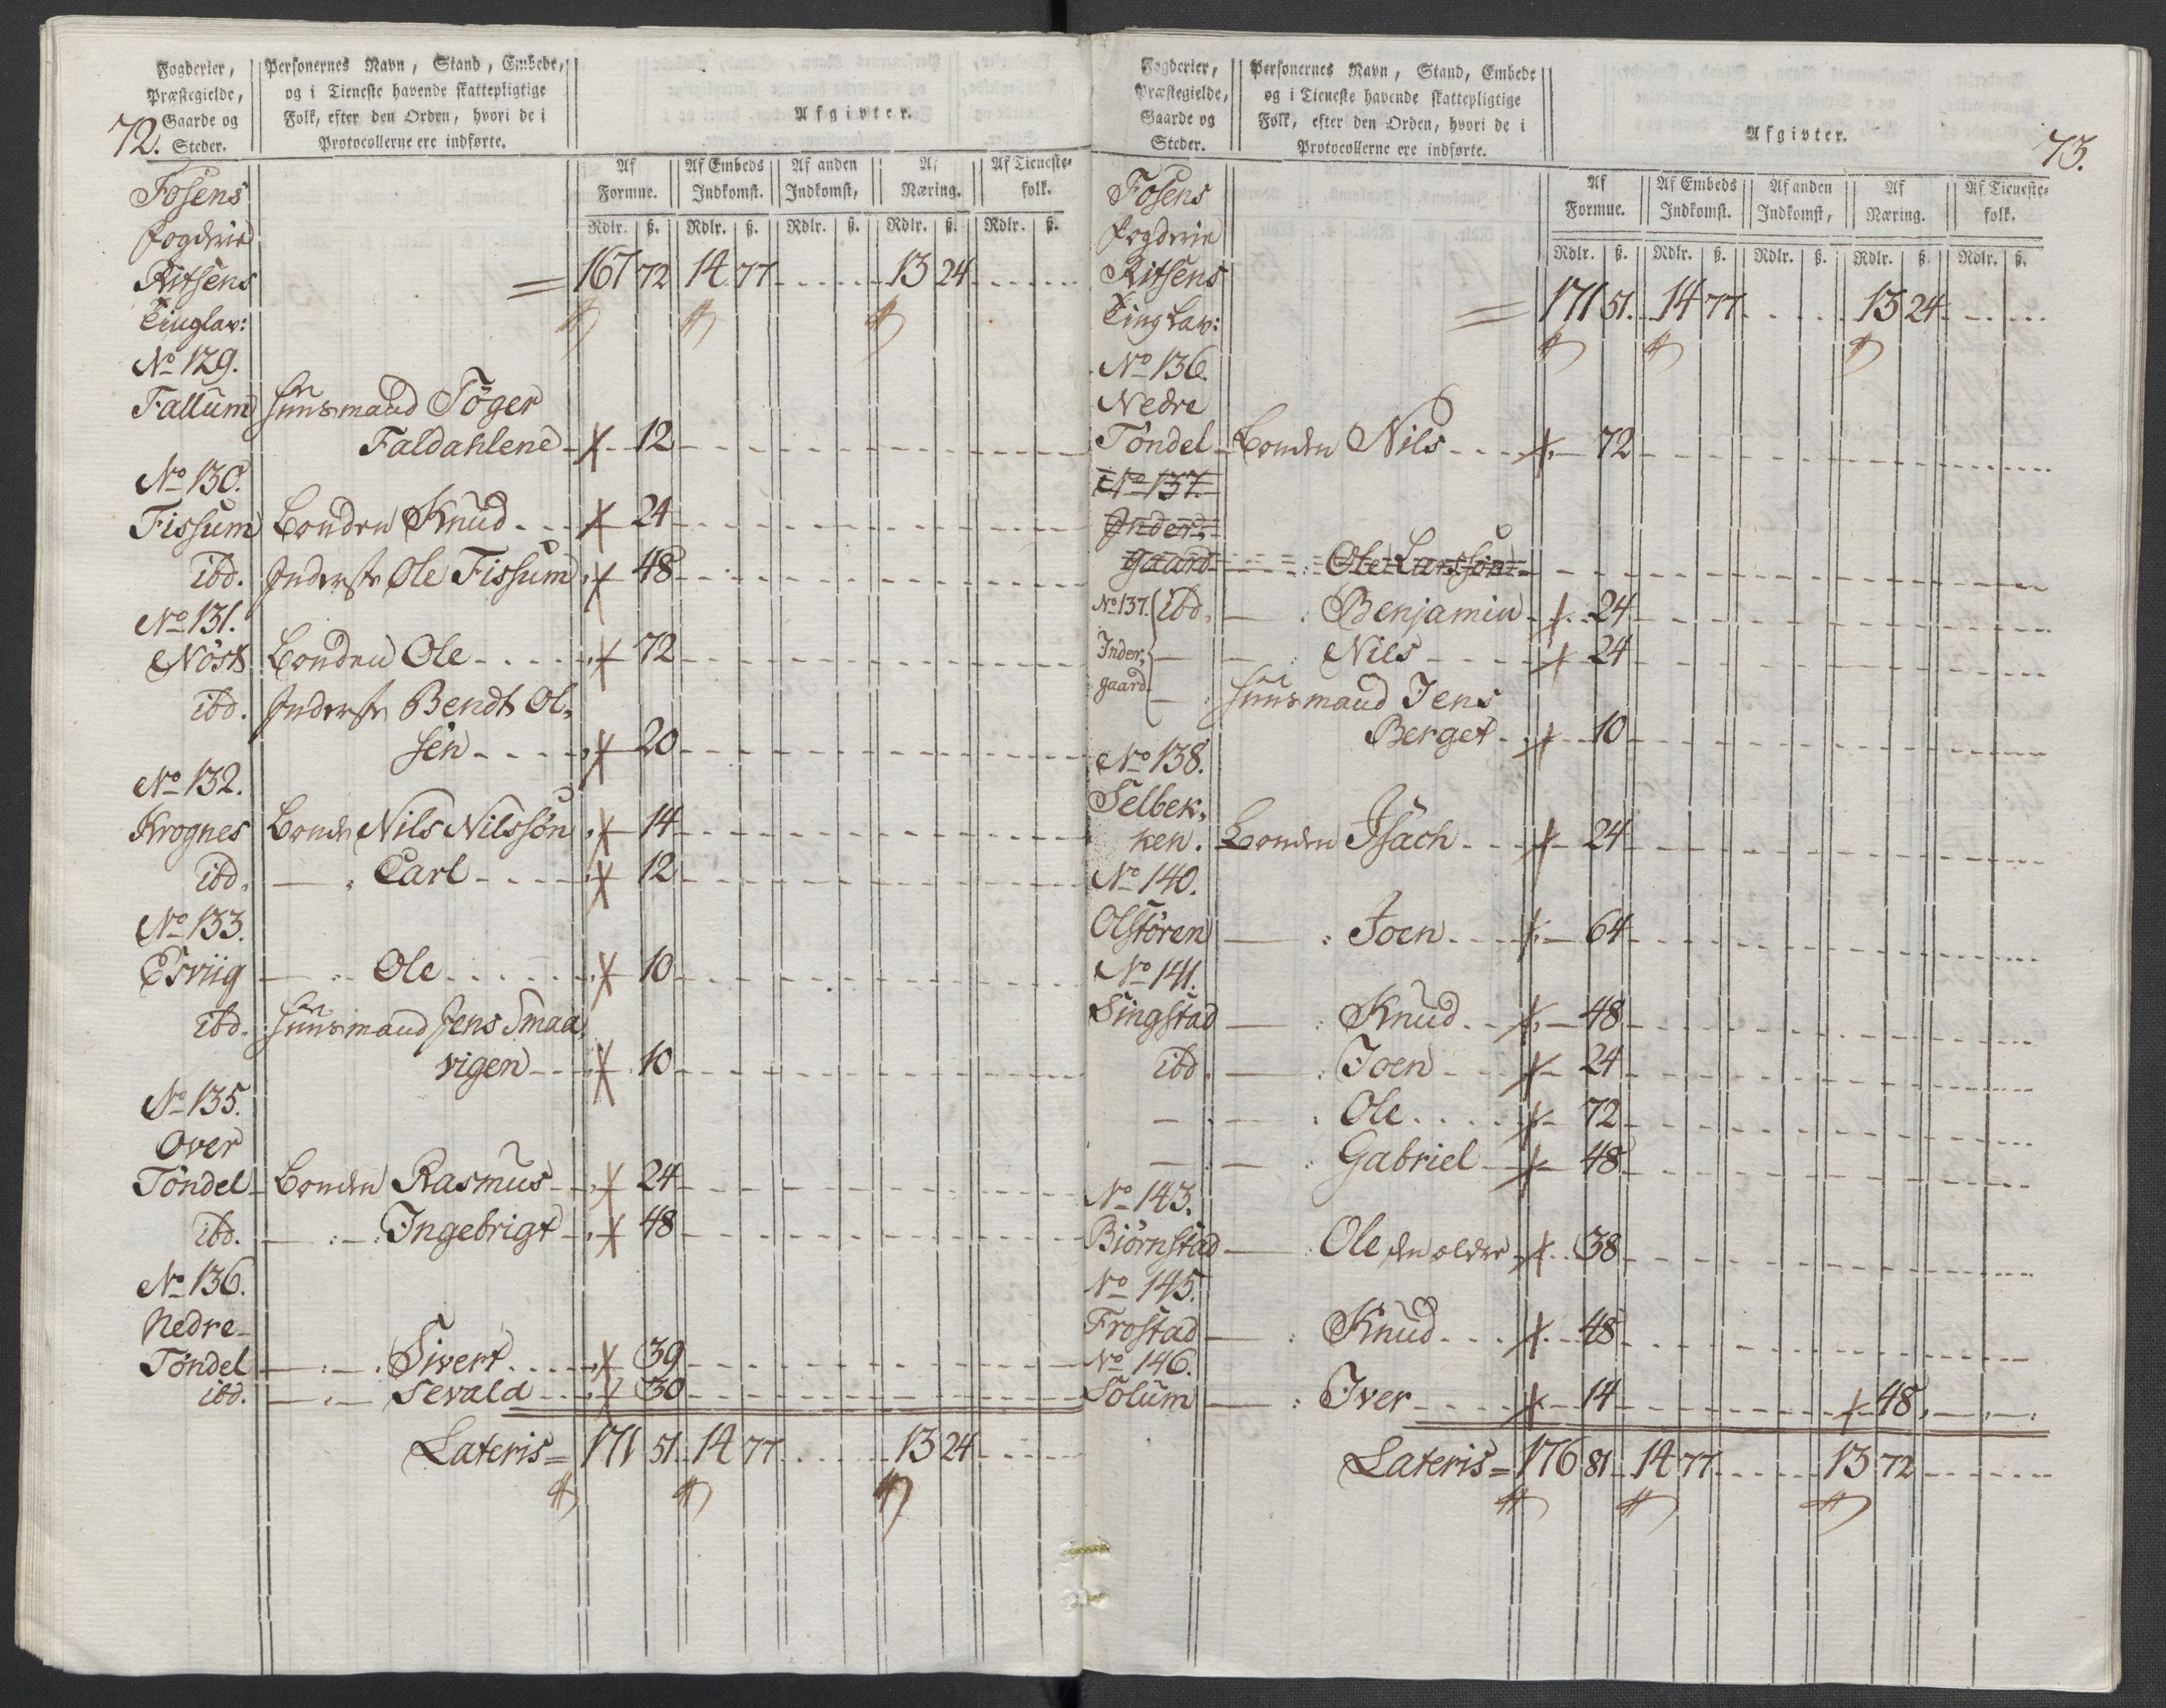 72.
Fogderier,
Præstegielde,
Gaarde og
Steder.
Personernes Navn, Stand, Embede,
og i Tieneste havende skattepligtige
Folk, efter den Orden, hvori de i
Protocollerne ere indførte.
Afgivter.
Af Formue. Af Embeds Indkomst. Af anden Indkomst, Af Næring. Af Tieneste-folk.
Rdlr. ß. Rdlr. ß. Rdlr. ß. Rdlr. ß. Rdlr. ß.
Fosens
Fogderie
Ritsens = 167 72 14 77 13 24
Tinglav:
No 129.
Fallum Huusmand Töger
Faldahlene 12
No 130.
Fissum Bonden Knud 24
ibd. Inderste Ole Fissum 48
No 131.
Nöst Bonden Ole 72
ibd. Inderste Bendt Ol,
sen 20
No 132.
Krognes Bonden Nils Nilssön 14
ibd. — Carl 12
No 133.
Esviig — Ole 10
ibd. Huusmand Jens Smaa,
vigen 10
No 135.
Over
Töndel Bonden Rasmus 24
ibd. — Ingebrigt 48
No 136.
Nedre
Töndel — Sivert 39
ibd. — Sevald 30
Lateris = 171 51 14 77 13 24
73.
Fogderier,
Præstegielde,
Gaarde og
Steder.
Personernes Navn, Stand, Embede
og i Tieneste havende skattepligtige
Folk, efter den Orden, hvori de i
Protocollerne ere indførte.
Afgivter.
Af Formue. Af Embeds Indkomst. Af anden Indkomst, Af Næring. Af Tieneste-folk.
Rdlr. ß. Rdlr. ß. Rdlr. ß. Rdlr. ß. Rdlr. ß.
Fosens
Fogderie
Ritsens
Ting Lav: = 171 51 14 77 13 24
No 136.
Nedre
Töndel Bonden Nils 72
No 137.
Inder,
gaard — Ole Larssön
No 137. ibd. — Benjamin 24
Inder, — — Nils 24
gaard — Huusmand Jens
Berget 10
No 138.
Selbek,
ken. Bonden Isach 24
No 140.
Olstören — Joen 64
No 141.
Singstad — Knud 48
ibd. — Joen 24
— — Ole 72
— — Gabriel 48
No 143.
Biörnstad — Ole den ældre 38
No 145.
Frostad — Knud 48
No 146.
Solum — Iver 14 48
Lateris = 176 81 14 77 13 72